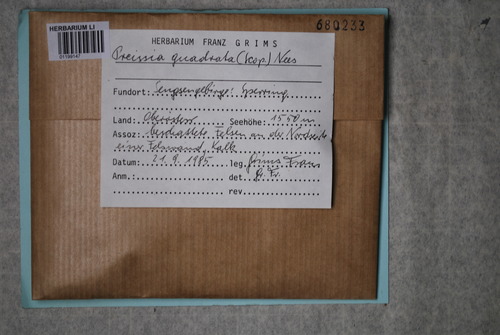 HERBARIUM LI
01199147
680233
HERBARIUM FRANZ GRIMS
Preissia quadrata (Scop.) Nees
Fundort: Sengsengebirge: Sperring
Land: Oberösterr. Seehöhe: 1550 m
Assoz: beschattete Felsen an der Nordseite
einer Felswand, Kalk
Datum: 21.9.1985 leg. Grims Franz
Anm.: det. Gr. Fr.
rev.